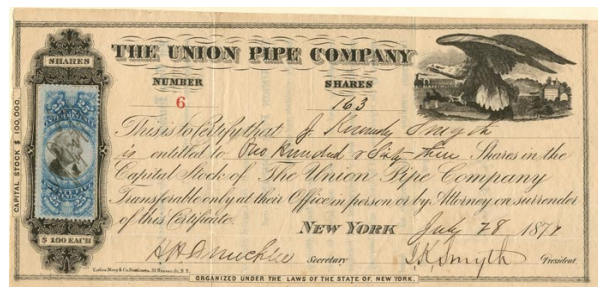 SHARES
THE UNION PIPE COMPANY
NUMBER SHARES
6 163
This is to Certify that J. Kennedy Smyth
is entitled to One Hundred & Sixty three Shares in the
Capital Stock of The Union Pipe Company
Transferable only at their Office in person or by Attorney on surrender
of this Certificate.
NEW YORK July 28 187
Secretary Smyth President.
CAPITAL STOCK $ 100,000.
25
$ 100 EACH
ORGANIZED UNDER THE LAWS OF THE STATE OF NEW YORK.